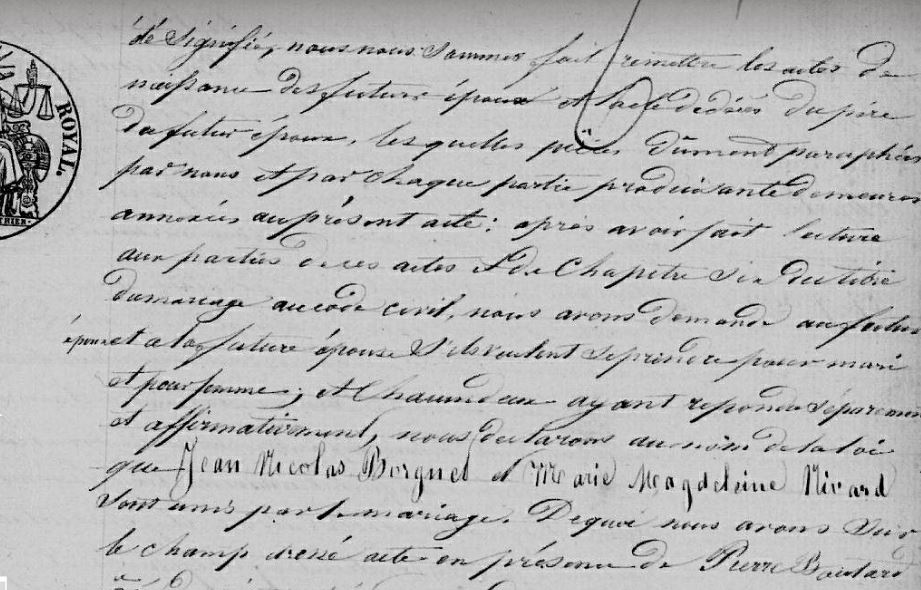 été signifiée, nous nous sommes fait remettre les actes de
naissance des futurs époux et l'acte de décès du père
du futur époux, les quelles pièces dûment paraphées
par nous et par chaque partie produisante demeurent
annexées au présent acte; après avoir fait lecture
aux parties de ces actes et du Chapitre six du titre
du mariage au code civil, nous avons demandé au futur
époux et a la future épouse s'ils veulent se prendre pour mari
et pour femme; et Chacun d'eux ayant répondu séparément
et affirmativement, nous déclarons au nom de la loi
que Jean Nicolas Borgnet et Marie Magdeleine Nivard
sont unis par le mariage. De quoi nous avons sur
le champ dressé acte en présence de Pierre Boutard
ROYAL